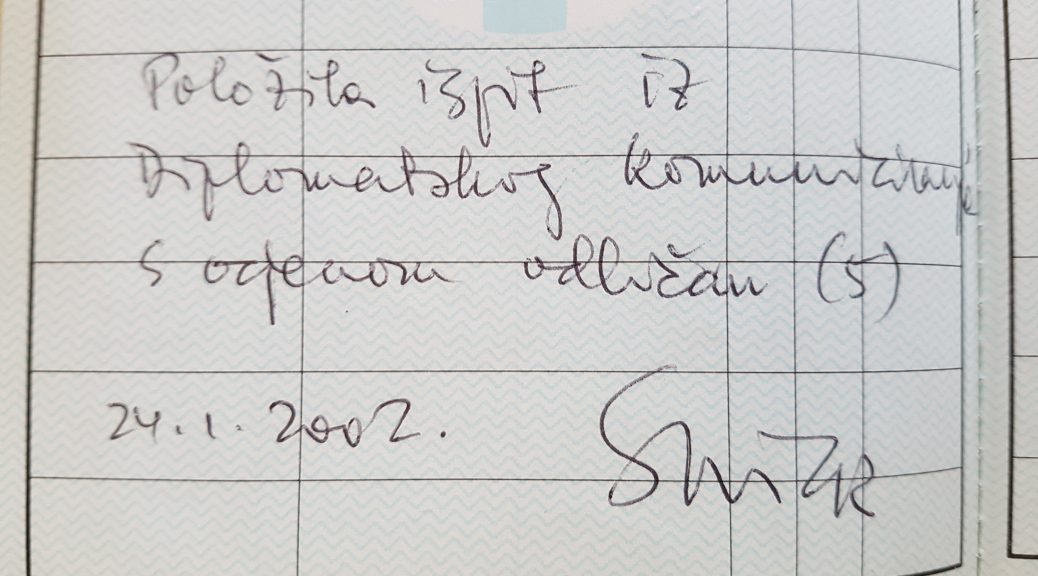 Položila ispit iz
Diplomatskog komuniciranja
s ocjenom odličan (5)
24.1.2002.